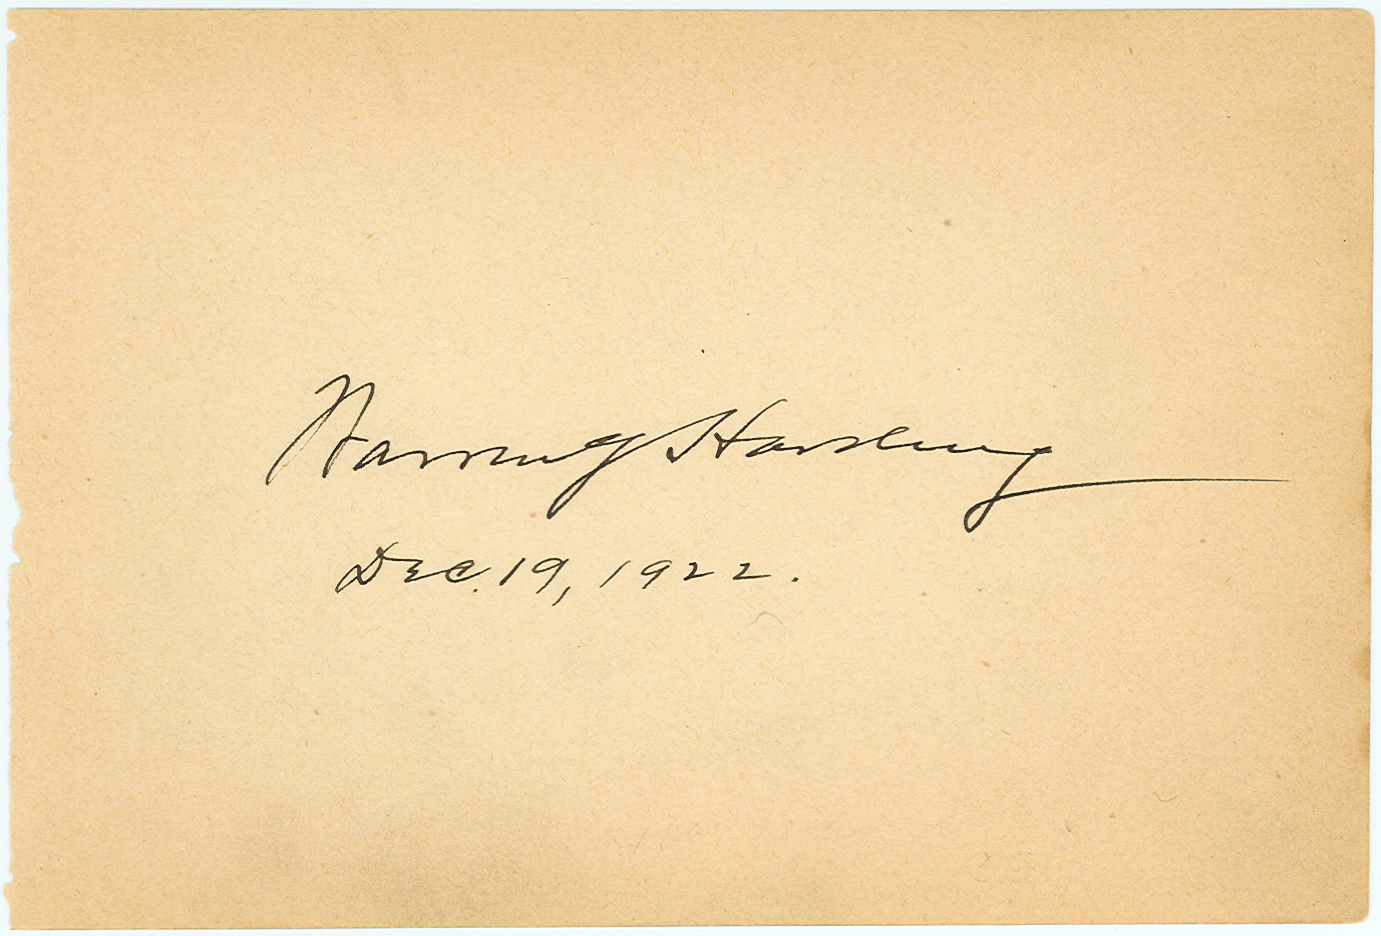 Warren G Harding
Dec. 19, 1922.